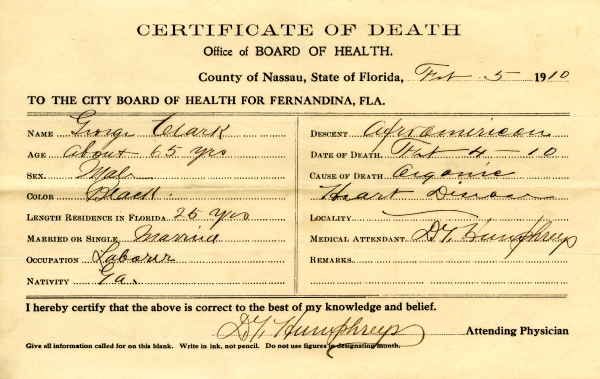 CERTIFICATE OF DEATH
Office of BOARD OF HEALTH.
County of Nassau, State of Florida, Feb 5 1910
TO THE CITY BOARD OF HEALTH FOR FERNANDINA, FLA.
NAME George Clark
AGE About 65 yrs
SEX. Male
COLOR Black.
LENGTH RESIDENCE IN FLORIDA. 25 yrs
MARRIED OR SINGLE. Married
OCCUPATION Laborer
NATIVITY Ga.
DESCENT. Afro American
DATE OF DEATH. Feb 4-10
CAUSE OF DEATH Organic
Heart Disease
LOCALITY
MEDICAL ATTENDANT. D.G. Humphreys
REMARKS.
I hereby certify that the above is correct to the best of my knowledge and belief.
D.G. Humphreys Attending Physician
Give all information called for on this blank. Write in ink, not pencil. Do not use figures in designating month.